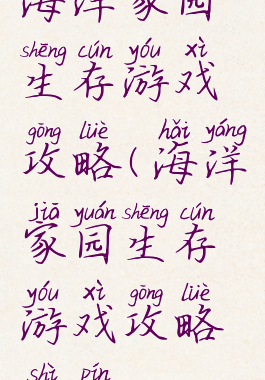 海洋家园
shēng cún yóu xì
生存游戏
gōng lüè hǎi yáng
攻略(海洋
jiā yuán shēng cún
家园生存
yóu xì gōng lüè
游戏攻略
shì pín